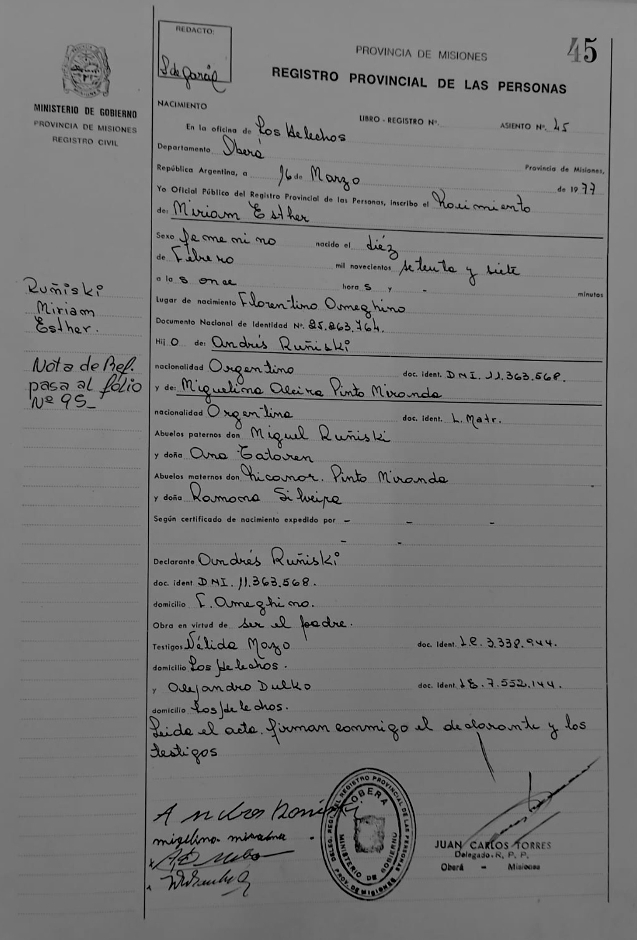 REDACTO:
PROVINCIA DE MISIONES
45
REGISTRO PROVINCIAL DE LAS PERSONAS
MINISTERIO DE GOBIERNO
PROVINCIA DE MISIONES
REGISTRO CIVIL
NACIMIENTO
LIBRO - REGISTRO Nº.
ASIENTO Nº. 45
En la oficina de Los Helechos
Departamento Oberá
Provincia de Misiones,
República Argentina, a 16 de Marzo de 1977
Yo Oficial Público del Registro Provincial de las Personas, inscribo el Nacimiento
de: Miriam Esther
Sexo femenino nacido el diéz
de Febrero mil novecientos setenta y siete
a la s once hora s y - minutos
Ruñiski
Miriam
Esther.
Lugar de nacimiento Florentino Ameghino
Documento Nacional de Identidad Nº. 25.263.764.
Hij o de: Andrés Ruñiski
nacionalidad Argentino doc. ident. DNI. 11.363.568.
Nota de Ref.
pasa al folio
Nº 95_
y de: Miguelina Alcira Pinto Miranda
nacionalidad Argentina doc. ident. L. Matr.
Abuelos paternos don Miguel Ruñiski
y doña Ana Tataren
Abuelos maternos don Nicanor. Pinto Miranda
y doña Ramona Silveira
Según certificado de nacimiento expedido por - - -
- -
Declarante Andrés Ruñiski
doc. ident DNI. 11.363.568.
domicilio F. Ameghino.
Obra en virtud de ser el padre.
Testigos Vélida Mazo doc. ident. 3.338.944.
domicilio Los Helechos.
y Alejandro Dulko doc. ident. 7.552.144.
domicilio Los Helechos.
Leida el acta. firman conmigo el declarante y los
testigos
DELEG. REG. DEL REGISTRO PROVINCIAL DE LAS PERSONAS
OBERA
MINISTERIO DE GOBIERNO
PROV. DE MISIONES
JUAN CARLOS TORRES
Delegado R. P. P.
Oberá - Misiones